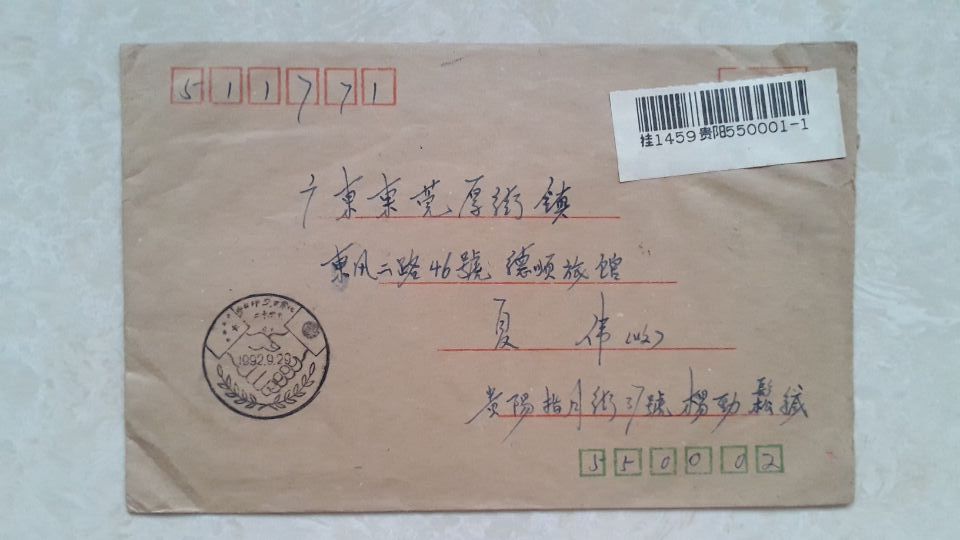 511771
挂1459 贵阳550001-1
广東東莞厚街鎮
東风二路46號 德順旅館
夏 伟(收)
1992.9.29
貴陽指月街37號 楊勁鬆緘
550002